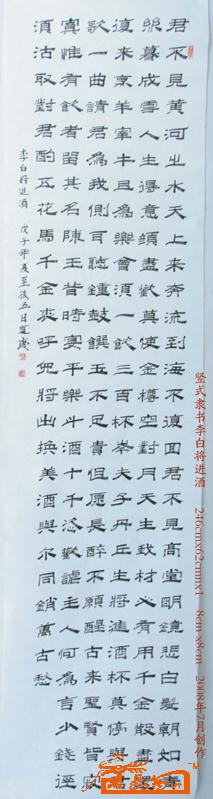 君不見黃河之水天上來奔流到海不復回君不見高堂明鏡悲白髮朝如青
絲暮成雪人生得意須盡歡莫使金樽空對月天生我材必有用千金散盡還
復來烹羊宰牛且為樂會須一飲三百杯岑夫子丹丘生將進酒杯莫停與君
歌一曲請君為我側耳聽鐘鼓饌玉不足貴但願長醉不願醒古來聖賢皆寂
寞惟有飲者留其名陳王昔時宴平樂斗酒十千恣歡謔主人何為言少錢徑
須沽取對君酌五花馬千金裘呼兒將出換美酒與爾同銷萬古愁
李白將進酒 戊子年夏至後五日
竖式隶书李白将进酒 246cmx62cmmx1 8cm x8cm 2008年7月创作
.com
TM